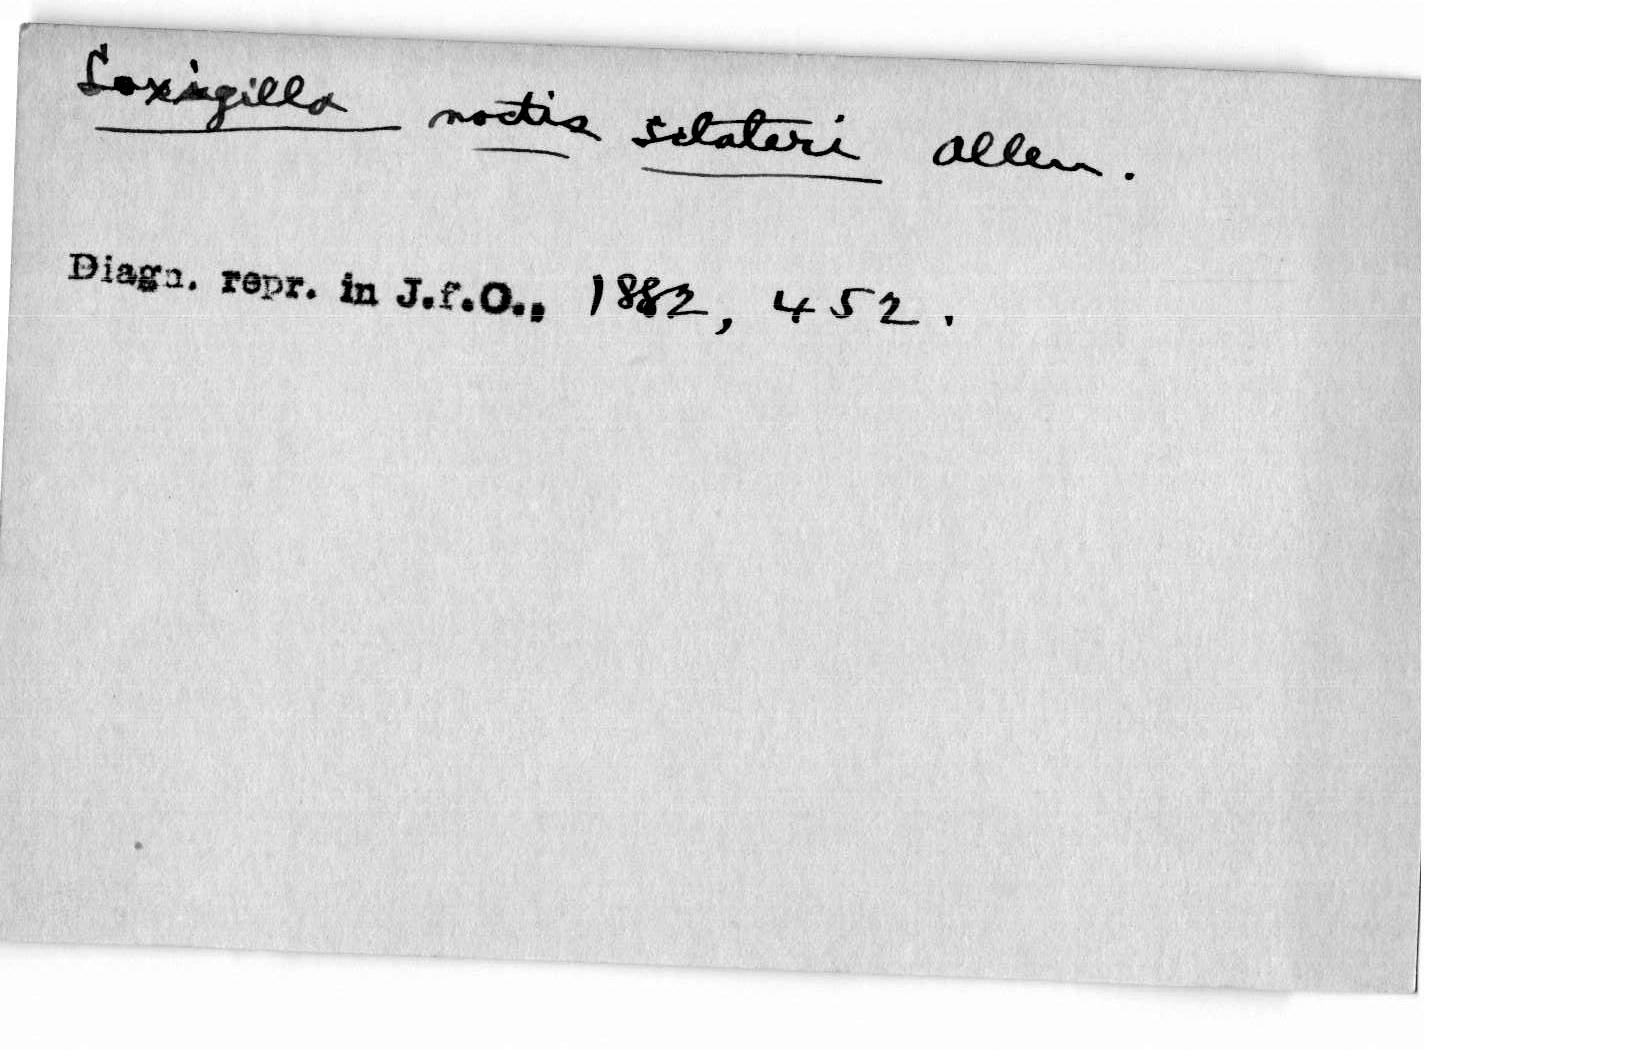 Loxigilla noctis sclateri Allen.
Diagn. repr. in J.f.O., 1882, 452.